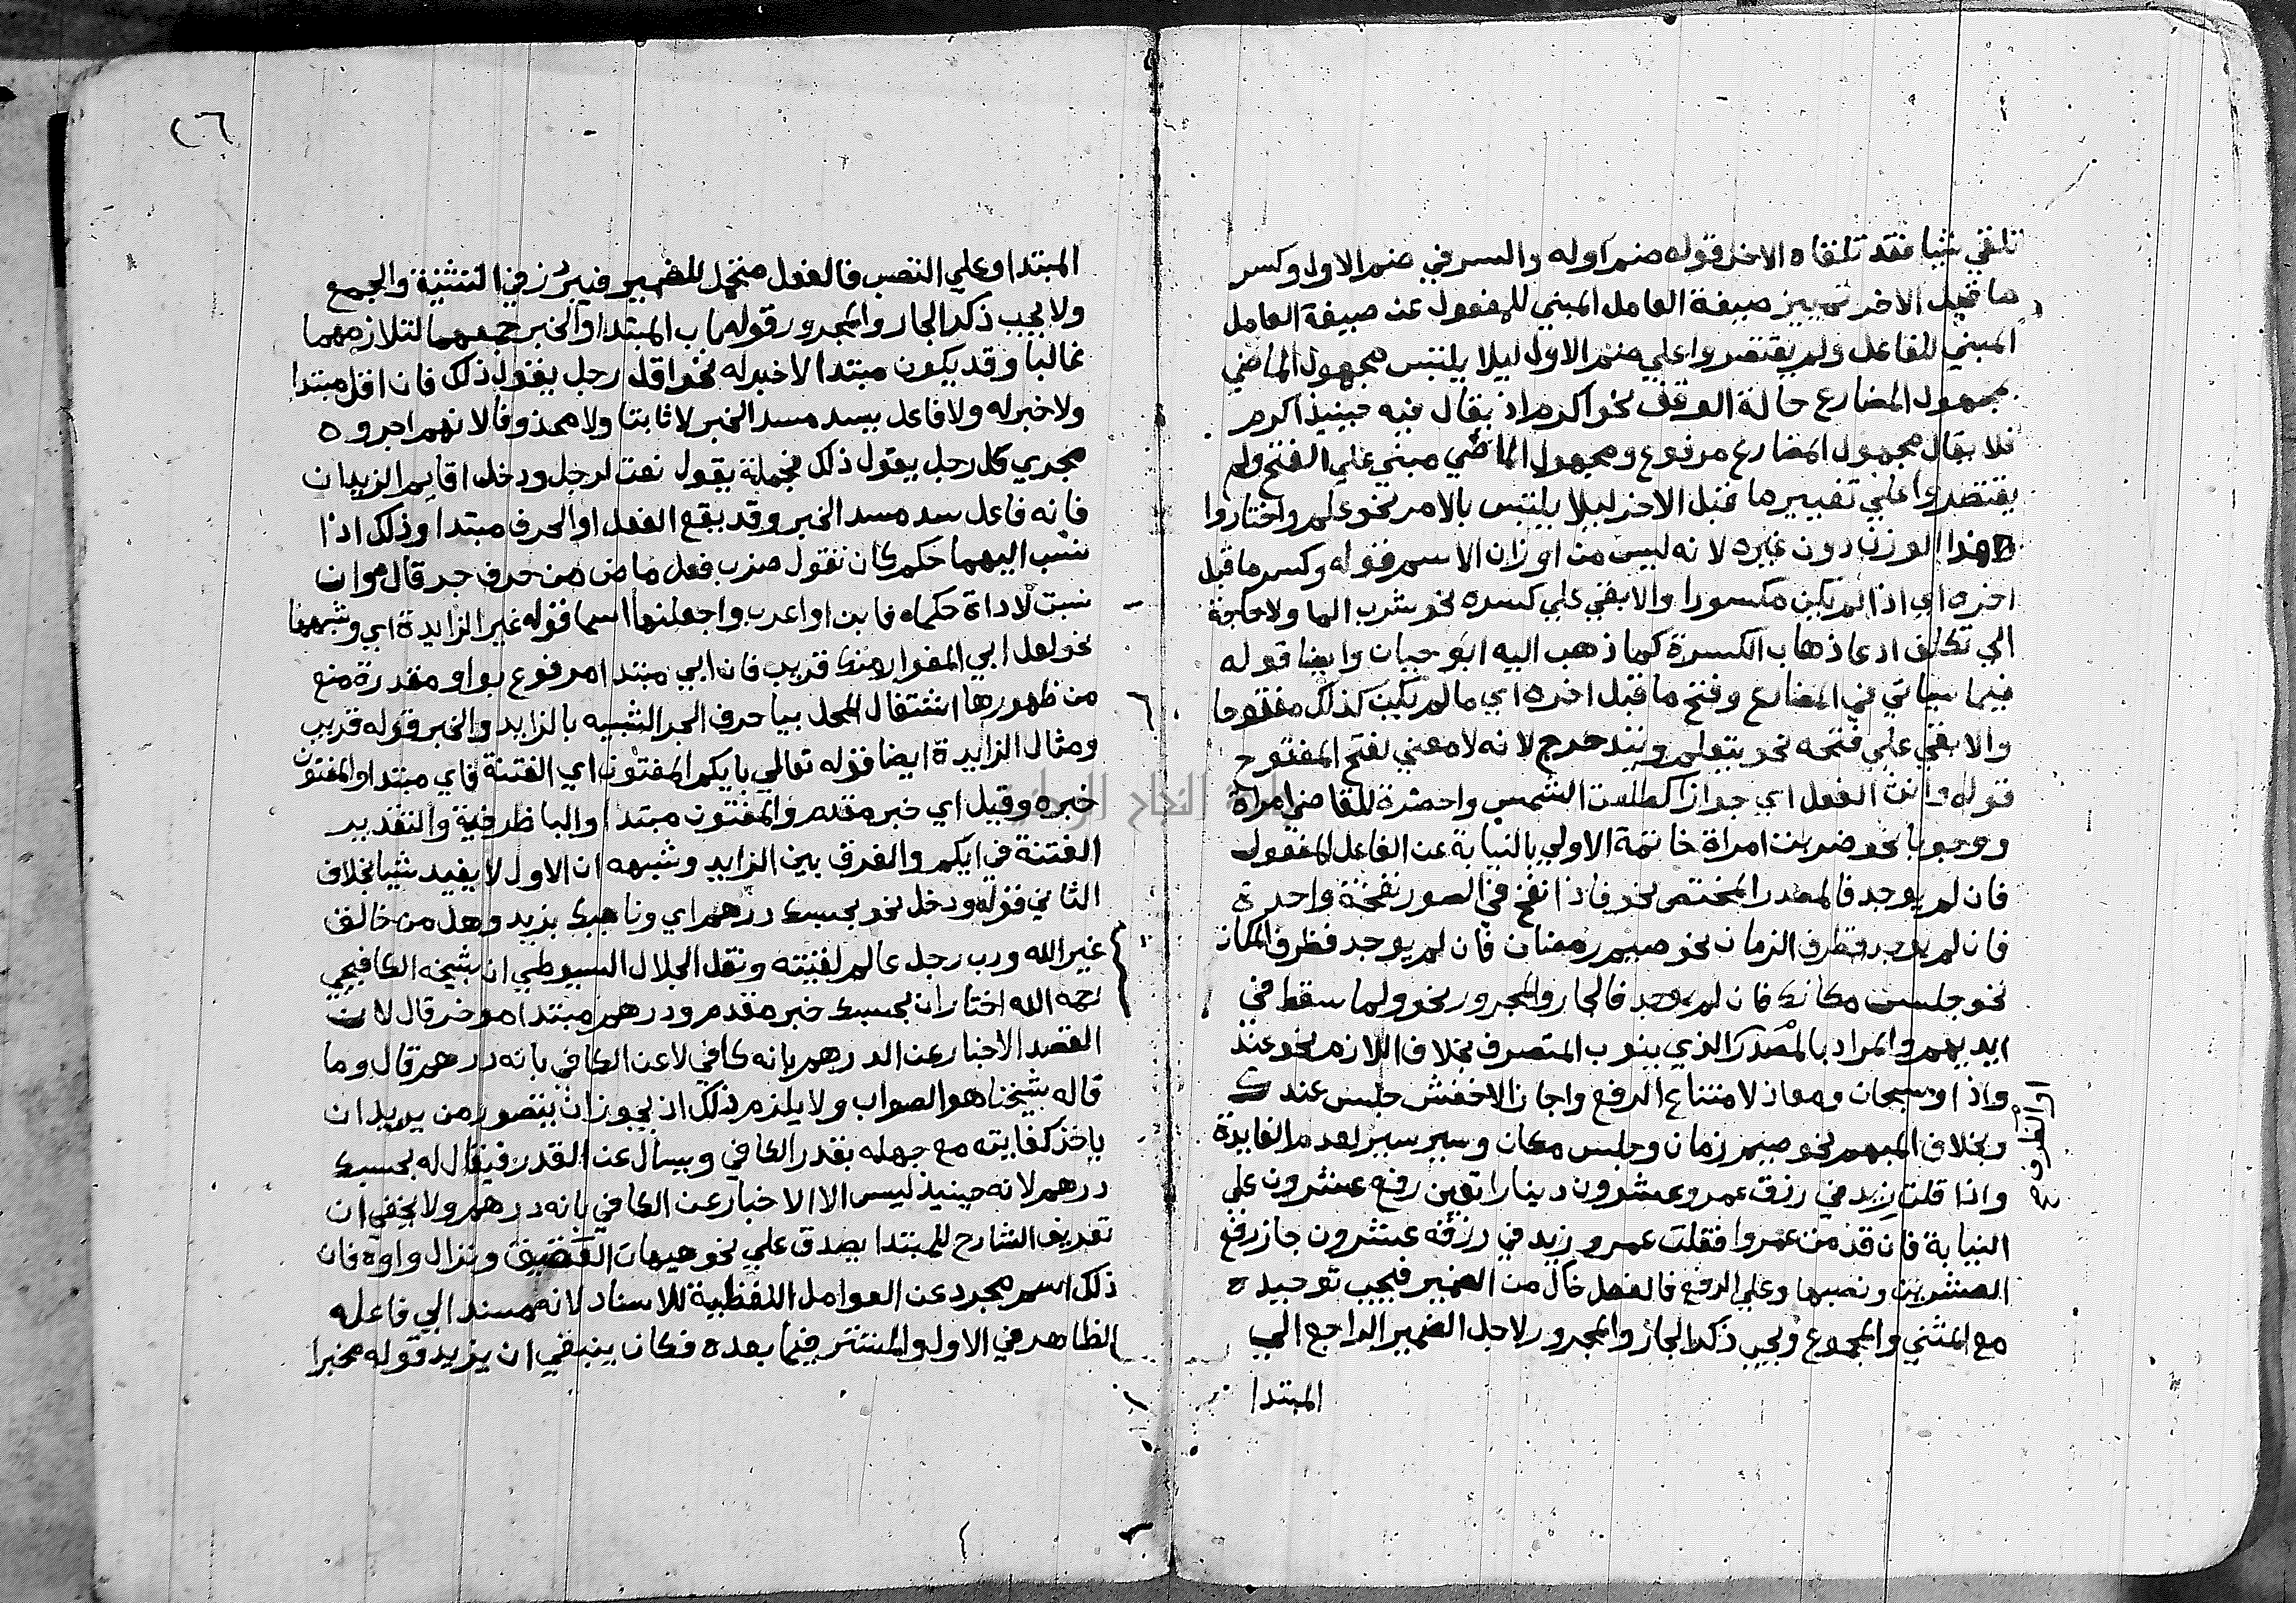 تلقي شيا فقد تلقاه الاخر قوله ضم اوله والسر في ضم الاول وكسر
ما قبل الاخر تمييز صيغة العامل المبني للمفعول عن صيغة العامل
المبني للفاعل ولم يقتصروا علي ضم الاول ليلا يلتبس مجهول الماضي
بمجهول المضارع حالة الوقف نحو اكرم اذ يقال فيه حينيذ اكرم
فلا يقال مجهول المضارع مرفوع ومجهول الماضي مبني علي الفتح ولم
يقتصروا علي تغيير ما قبل الاخر ليلا يلتبس بالامر نحو علم واختاروا
هذا الوزن دون غيره لانه ليس من اوزان الاسم قوله وكسر ما قبل
اخره اي اذا لم يكن مكسورا والا بقي علي كسره نحو شرب الما ولا حاجة
الي تكلف ادعا ذهاب الكسرة كما ذهب اليه ابو حيان وايضا قوله
فيما سياتي في المضارع وفتح ما قبل اخره اي ما لم يكن كذلك مفتوحا
والا بقي علي فتحه نحو يتعلم ويتدحرج لانه لا معني لفتح المفتوح
قوله وانث الفعل اي جوازا كطلعت الشمس واحضرة للقاضي امراة
ووجوبا نحو ضربت امراة خاتمة الاولي بالنيابة عن الفاعل المفعول
فان لم يوجد فالمصدر المختص نحو فاذا نفخ في الصور نفخة واحدة
فان لم يوجد فظرف الزمان نحو صيم رمضان فان لم يوجد فظرف المكان
نحو جلست مكانك فان لم يوجد فالجار والمجرور نحو ولما سقط في
ايديهم والمراد بالمصدر الذي ينوب المتصرف بخلاف اللازم نحو عند
واذا وسبحان ومعاذ لامتناع الرفع واجاز الاخفش جلس عندك
وبخلاف المبهم نحو صيم زمان وجلس مكان وسير سير لعدم الفايدة
واذا قلت زيد في رزق عمرو عشرون دينارا تعين رفع عشرون علي
النيابة فان قدمت عمروا فقلت عمرو زيد في رزقه عشرون جاز رفع
العشرين ونصبها وعلي الرفع فالفعل خال من الضمير فيجب توحيده
مع المثني والمجموع ويجب ذكر الجار والمجرور لاجل الضمير الراجع الي
المبتدا
او الظرف صح
٢٦
المبتدا وعلي النصب فالفعل متحمل للضمير فيبرز في التثنية والجمع
ولا يجب ذكر الجار والمجرور قوله باب المبتدا والخبر جمعهما لتلازمهما
غالبا وقد يكون مبتدا لا خبر له نحو اقل رجل يقول ذلك فان اقل مبتدا
ولا خبر له ولا فاعل يسد مسد الخبر لا ثابتا ولا محذوفا لانهم اجروه
مجري كل رجل يقول ذلك فجملة يقول نعت لرجل ودخل اقايم الزيدان
فانه فاعل سد مسد الخبر وقد يقع الفعل او الحرف مبتدا وذلك اذا
نسب اليهما حكم كان تقول ضرب فعل ماض من حرف جر قال وان
نسبت لاداة حكما فابن او اعرب واجعلنها اسما قوله غير الزايدة اي وشبهها
نحو لعل ابي المغوار منك قريب فان ابي مبتدا مرفوع بواو مقدرة منع
من ظهورها اشتغال المحل بيا حرف الجر الشبيه بالزايد والخبر قوله قريب
ومثال الزايدة ايضا قوله تعالي بايكم المفتون اي الفتنة فاي مبتدا والمفتون
خبره وقيل اي خبر مقدم والمفتون مبتدا والبا ظرفية والتقدير
الفتنة في ايكم والفرق بين الزايد وشبهه ان الاول لا يفيد شيا بخلاف
الثاني قوله ودخل نحو بحسبك درهم اي وناهيك بزيد وهل من خالق
غير الله ورب رجل عالم لقيته ونقل الجلال السيوطي ان شيخه الكافيجي
رحمه الله اختار ان بحسبك خبر مقدم ودرهم مبتدا موخر قال لان
القصد الاخبار عن الدرهم بانه كافي لا عن الكافي بانه درهم قال وما
قاله شيخنا هو الصواب ولا يلزم ذلك اذ يجوز ان يتصور من يريد ان
ياخذ كفايته مع جهله بقدر الكافي ويسال عن القدر فيقال له بحسبك
درهم لانه حينيذ ليس الا الاخبار عن الكافي بانه درهم ولا يخفي ان
تعريف الشارح للمبتدا يصدق علي نحو هيهات العقيق ونزال واوه فان
ذلك اسم مجرد عن العوامل اللفظية للاسناد لانه مسند الي فاعله
الظاهر في الاول والمستتر فيما بعده فكان ينبغي ان يزيد قوله مخبرا